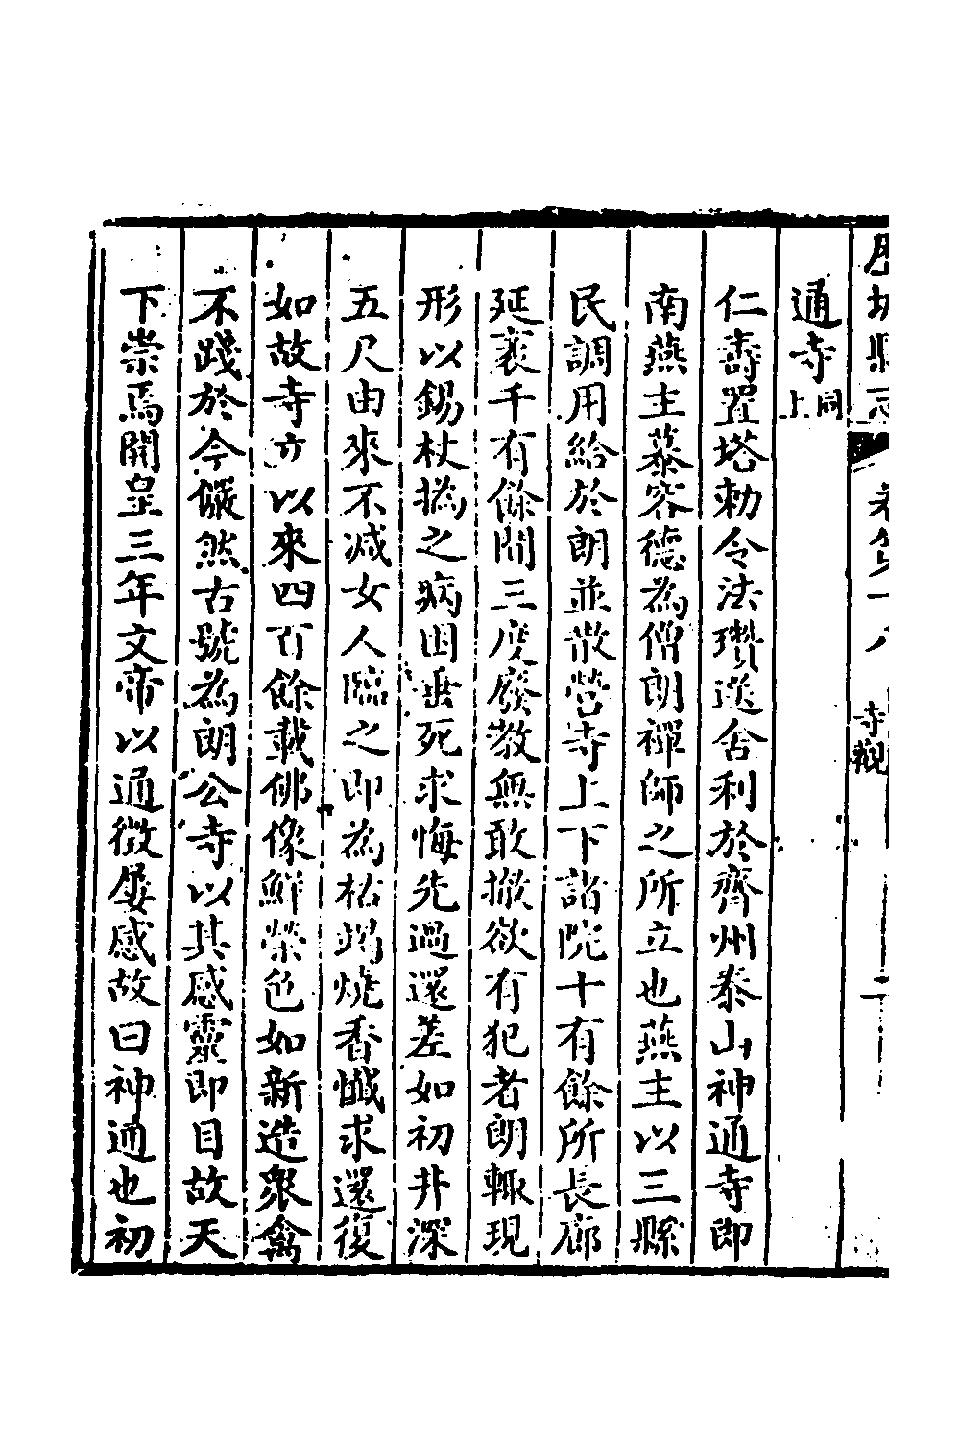 歷城縣志　卷第十八　寺觀　一
通寺同上
仁壽置塔勅令法瓚送舍利於齊州泰山神通寺即
南燕主慕容德為僧朗禪師之所立也燕主以三縣
民調用給於朗並散營寺上下諸院十有餘所長廊
延袤千有餘間三度廢教無敢撤欲有犯者朗輒現
形以錫杖撝之病困垂死求悔先過還差如初井深
五尺由來不減女人臨之即為枯竭燒香懺求還復
如故寺立以來四百餘載佛像鮮榮色如新造眾禽
不踐於今儼然古號為朗公寺以其感靈即目故天
下崇焉開皇三年文帝以通徵屢感故曰神通也初